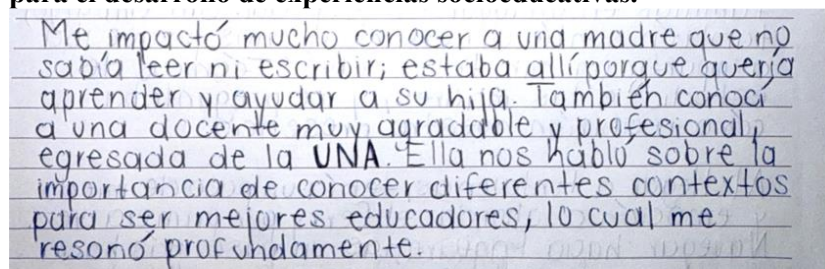 para el desarrollo de experiencias socioeducativas.
Me impactó mucho conocer a una madre que no
sabía leer ni escribir; estaba allí porque quería
aprender y ayudar a su hija. También conocí
a una docente muy agradable y profesional,
egresada de la UNA. Ella nos habló sobre la
importancia de conocer diferentes contextos
para ser mejores educadores, lo cual me
resonó profundamente.